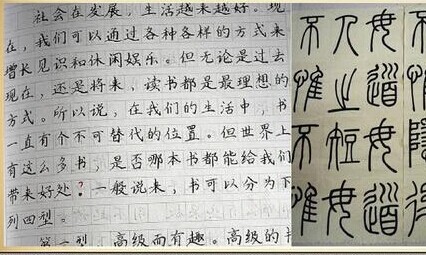 社会在发展，生活越来越好。现
在，我们可以通过各种各样的方式来
增长见识和休闲娱乐。但无论是过去
现在，还是将来，读书都是最理想的
方式。所以说，在我们的生活中，书
一直有个不可替代的位置。但世界上
有这么多书，是否哪本书都能给我们
带来好处？一般说来，书可以分为下
列四型。
第一型，高级而有趣。高级的
毋道毋道
人之短毋